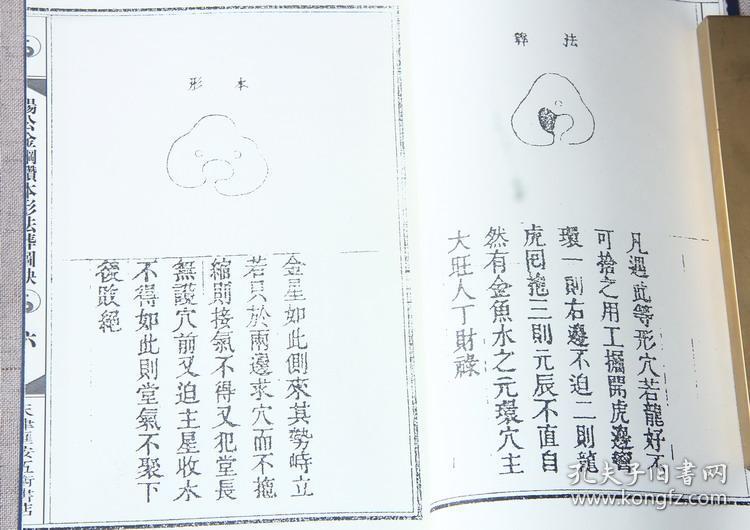 法葬
凡遇此等形穴若龍好不
可捨之用工掘開虎邊彎
環一則右邊不迫二則龍
虎囘抱三則元辰不直自
然有金魚水之元環穴主
大旺人丁財祿
本形
金星如此側來其勢峙立
若只於兩邊求穴而不拖
縮則接氣不得又犯堂長
無護穴前又迫主星收水
不得如此則堂氣不聚下
後敗絕
楊公金鋼鑽本形法葬圖訣
六
天津 安五術書店
孔夫子旧书网
kongfz.com